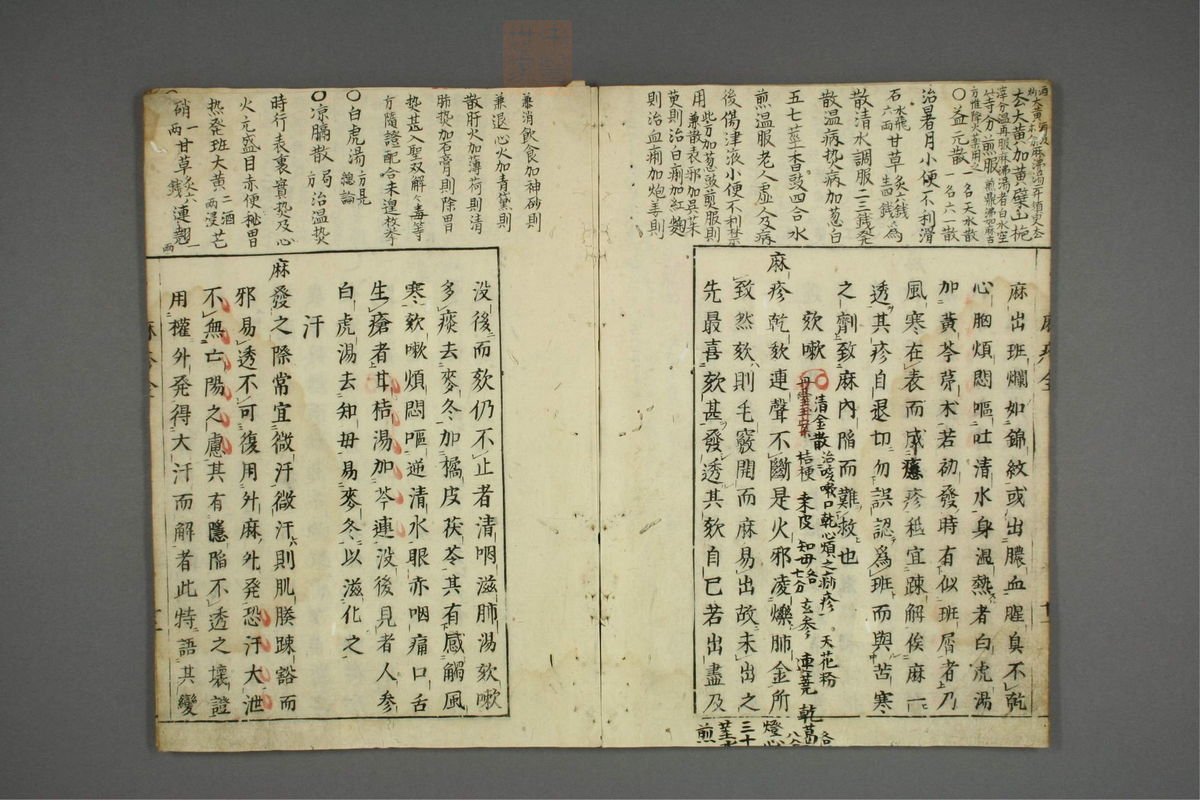 去大黄加黄蘗山梔
等分煎服
〇益元散 一名天水散 一名六一散
治暑月小便不利滑
石 水飛六両 甘草 炙六銭生四銭 為
散清水調服二三銭発
散温病熱病加葱白
五七莖香豉四合水
煎温服老人虚人及病
後傷津液小便不利禁
用 此方加葱豉煎服則兼散表邪加呉茱
萸則治白痢加紅麹
則治血痢加炮姜則
麻出班爛如錦紋或出膿血腥臭不乾
心胸煩悶嘔吐清水身温熱者白虎湯
加黄芩蒼朮若初發時有似班屑者乃
風寒在表而感癮疹秪宜疎解俟麻一
透其疹自退切勿誤認為班而與苦寒
之劑致麻内陥而難救也
欬嗽
〇清金散 治咳嗽口乾心煩之痧疹
桔梗 桑皮 知母 各七分 玄参 連蕘 乾葛 各八分 天花粉
燈心三十莖水煎
麻疹乾欬連聲不斷是火邪凌爍肺金所
致然欬則毛竅開而麻易出故未出之
先最喜欬甚發透其欬自已若出盡及
兼消飲食加神砂則
兼退心火加青黛則
散肝火加薄荷則清
肺熱加石膏則除胃
熱甚入聖双解々毒等
方隨證配合未遑枚挙
〇白虎湯 方見總論
〇凉膈散 局方 治温熱
時行表裏實熱及心
火亢盛目赤便秘胃
热発班大黄 二両酒浸 芒
硝 一両 甘草 炙六銭 連翹 一両
没後而欬仍不止者清咽滋肺湯欬嗽
多痰去麥冬加橘皮茯苓其有感觸風
寒欬嗽煩悶嘔逆清水眼赤咽痛口舌
生瘡者甘桔湯加芩連没後見者人参
白虎湯去知母易麥冬以滋化之
汗
麻發之際常宜微汗微汗則肌腠疎豁而
邪易透不可復用外麻外発恐汗大泄
不無亡陽之慮其有隱陥不透之壊證
用權外発得大汗而解者此特語其變